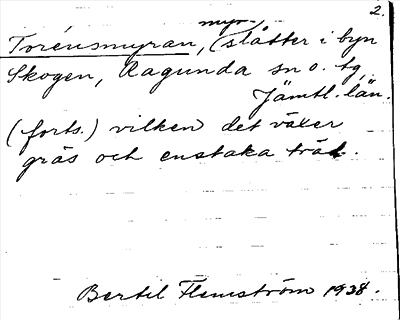 2.
myr-,
Torénsmyran, (slåtter i byn
Skogen, Ragunda sn o. tg,
Jämtl. län.
(forts.) vilken det växer
gräs och enstaka träd.
Bertil Flemström 1938.